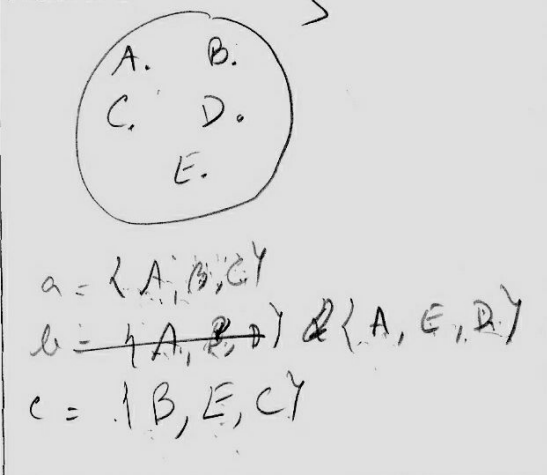 A. B.
C. D.
E.
a = {A, B, C}
b = {A, B, D} {A, E, D}
c = {B, E, C}